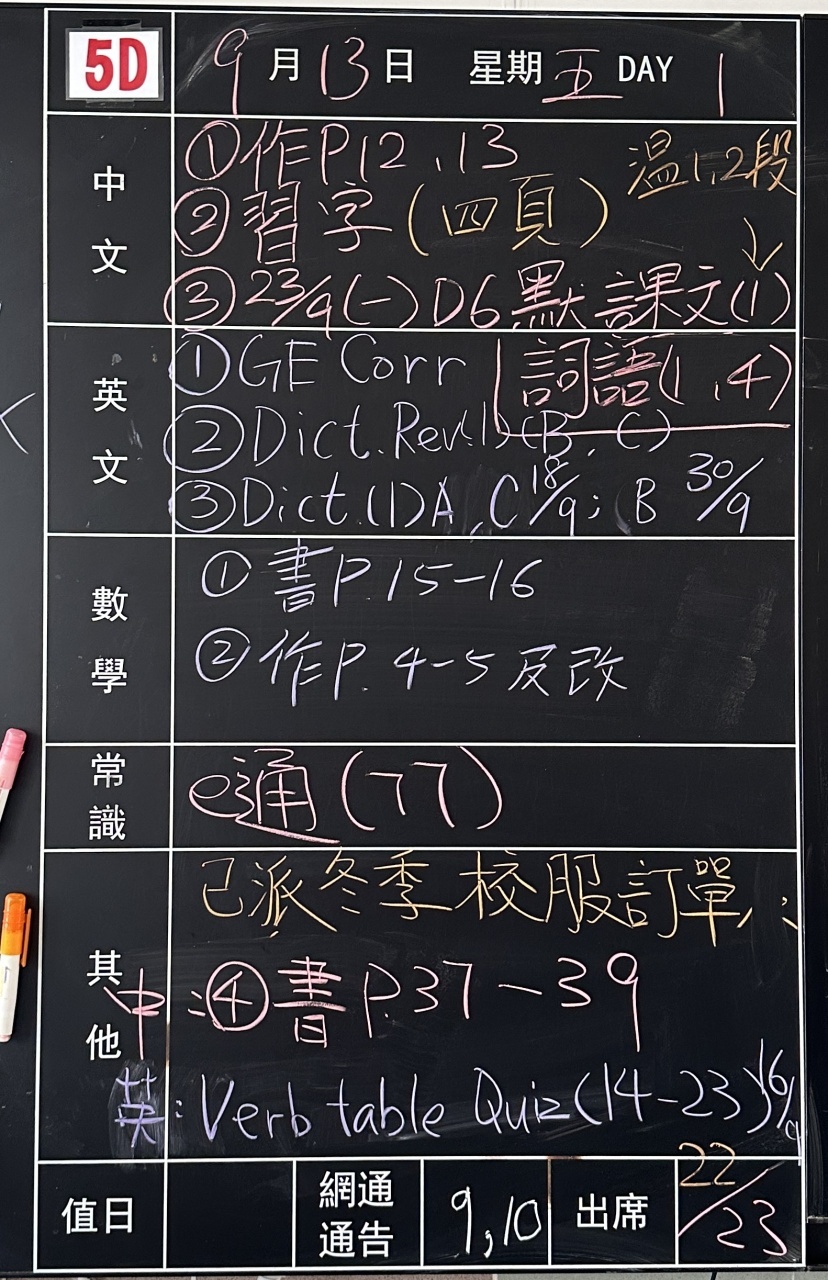 5D 9月13日 星期五 DAY 1
中文
①作P12,13 温1,2段
②習字(四頁)
③23/9(一)D6默課文(1)
詞語(1,4)
英文
①GE Corr
②Dict. Rev.(1)(B, C)
③Dict.(1)A,C 18/9; B 30/9
數學
①書P.15-16
②作P.4-5反改
常識
e通(77)
其他
已派冬季校服訂單
中:④書P.37-39
英:Verb table Quiz(14-23)16/9
值日 網通通告 9,10 出席 22/23